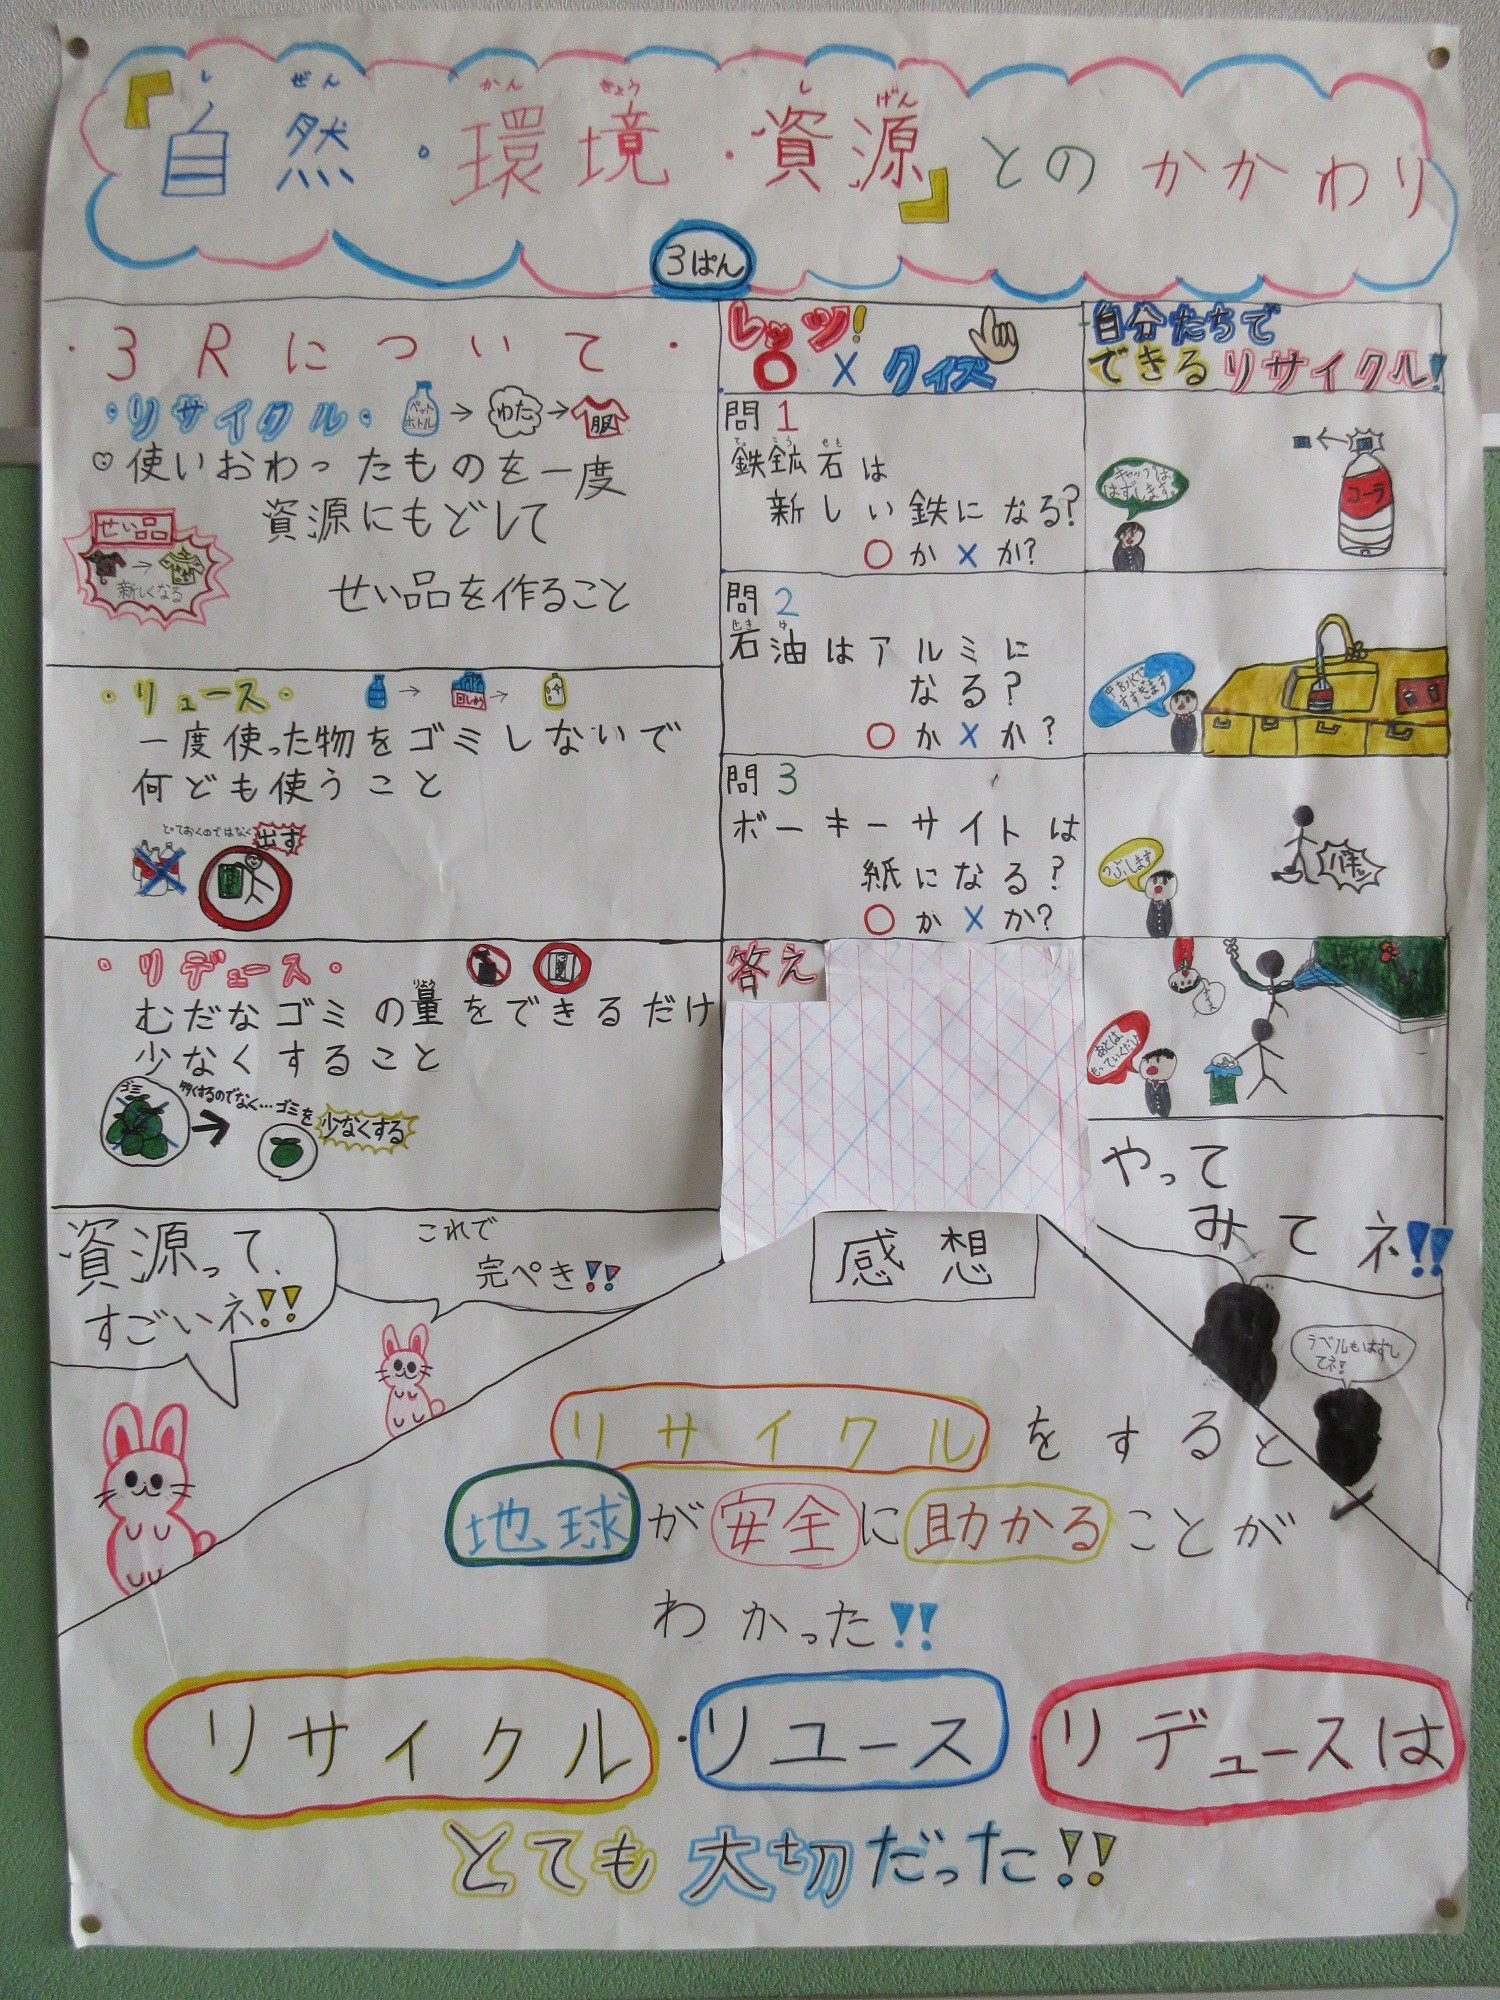 『自然・環境・資源』とのかかわり
しぜん かんきょう しげん
3ぱん
・3Rについて・
・リサイクル・
ペットボトル→わた→服
使いおわったものを一度
資源にもどして
せい品を作ること
せい品
→
新しくなる
・リュース・
→ 回しゅう →
一度使った物をゴミしないで
何ども使うこと
とっておくのではなく出す
・リデュース・
むだなゴミの量をできるだけ
少なくすること
ゴミ
多くするのでなく…ゴミを少なくする
レッツ!
○×クイズ
問1
鉄鉱石は
新しい鉄になる?
○か×か?
問2
せきゆ
石油はアルミに
なる?
○か×か?
問3
ボーキーサイトは
紙になる?
○か×か?
答え
自分たちで
できるリサイクル!
キャップは
はずします。
コーラ
中を水で
すすぎます
つぶします
バキッ
あとは、
もっていくだけ
やって
みてネ!!
ラベルもはずし
てネ!
資源って、
すごいネ!!
これで
完ぺき!!
感想
リサイクルをすると
地球が安全に助かることが
わかった!!
リサイクル・リユース・リデュースは
とても大切だった!!